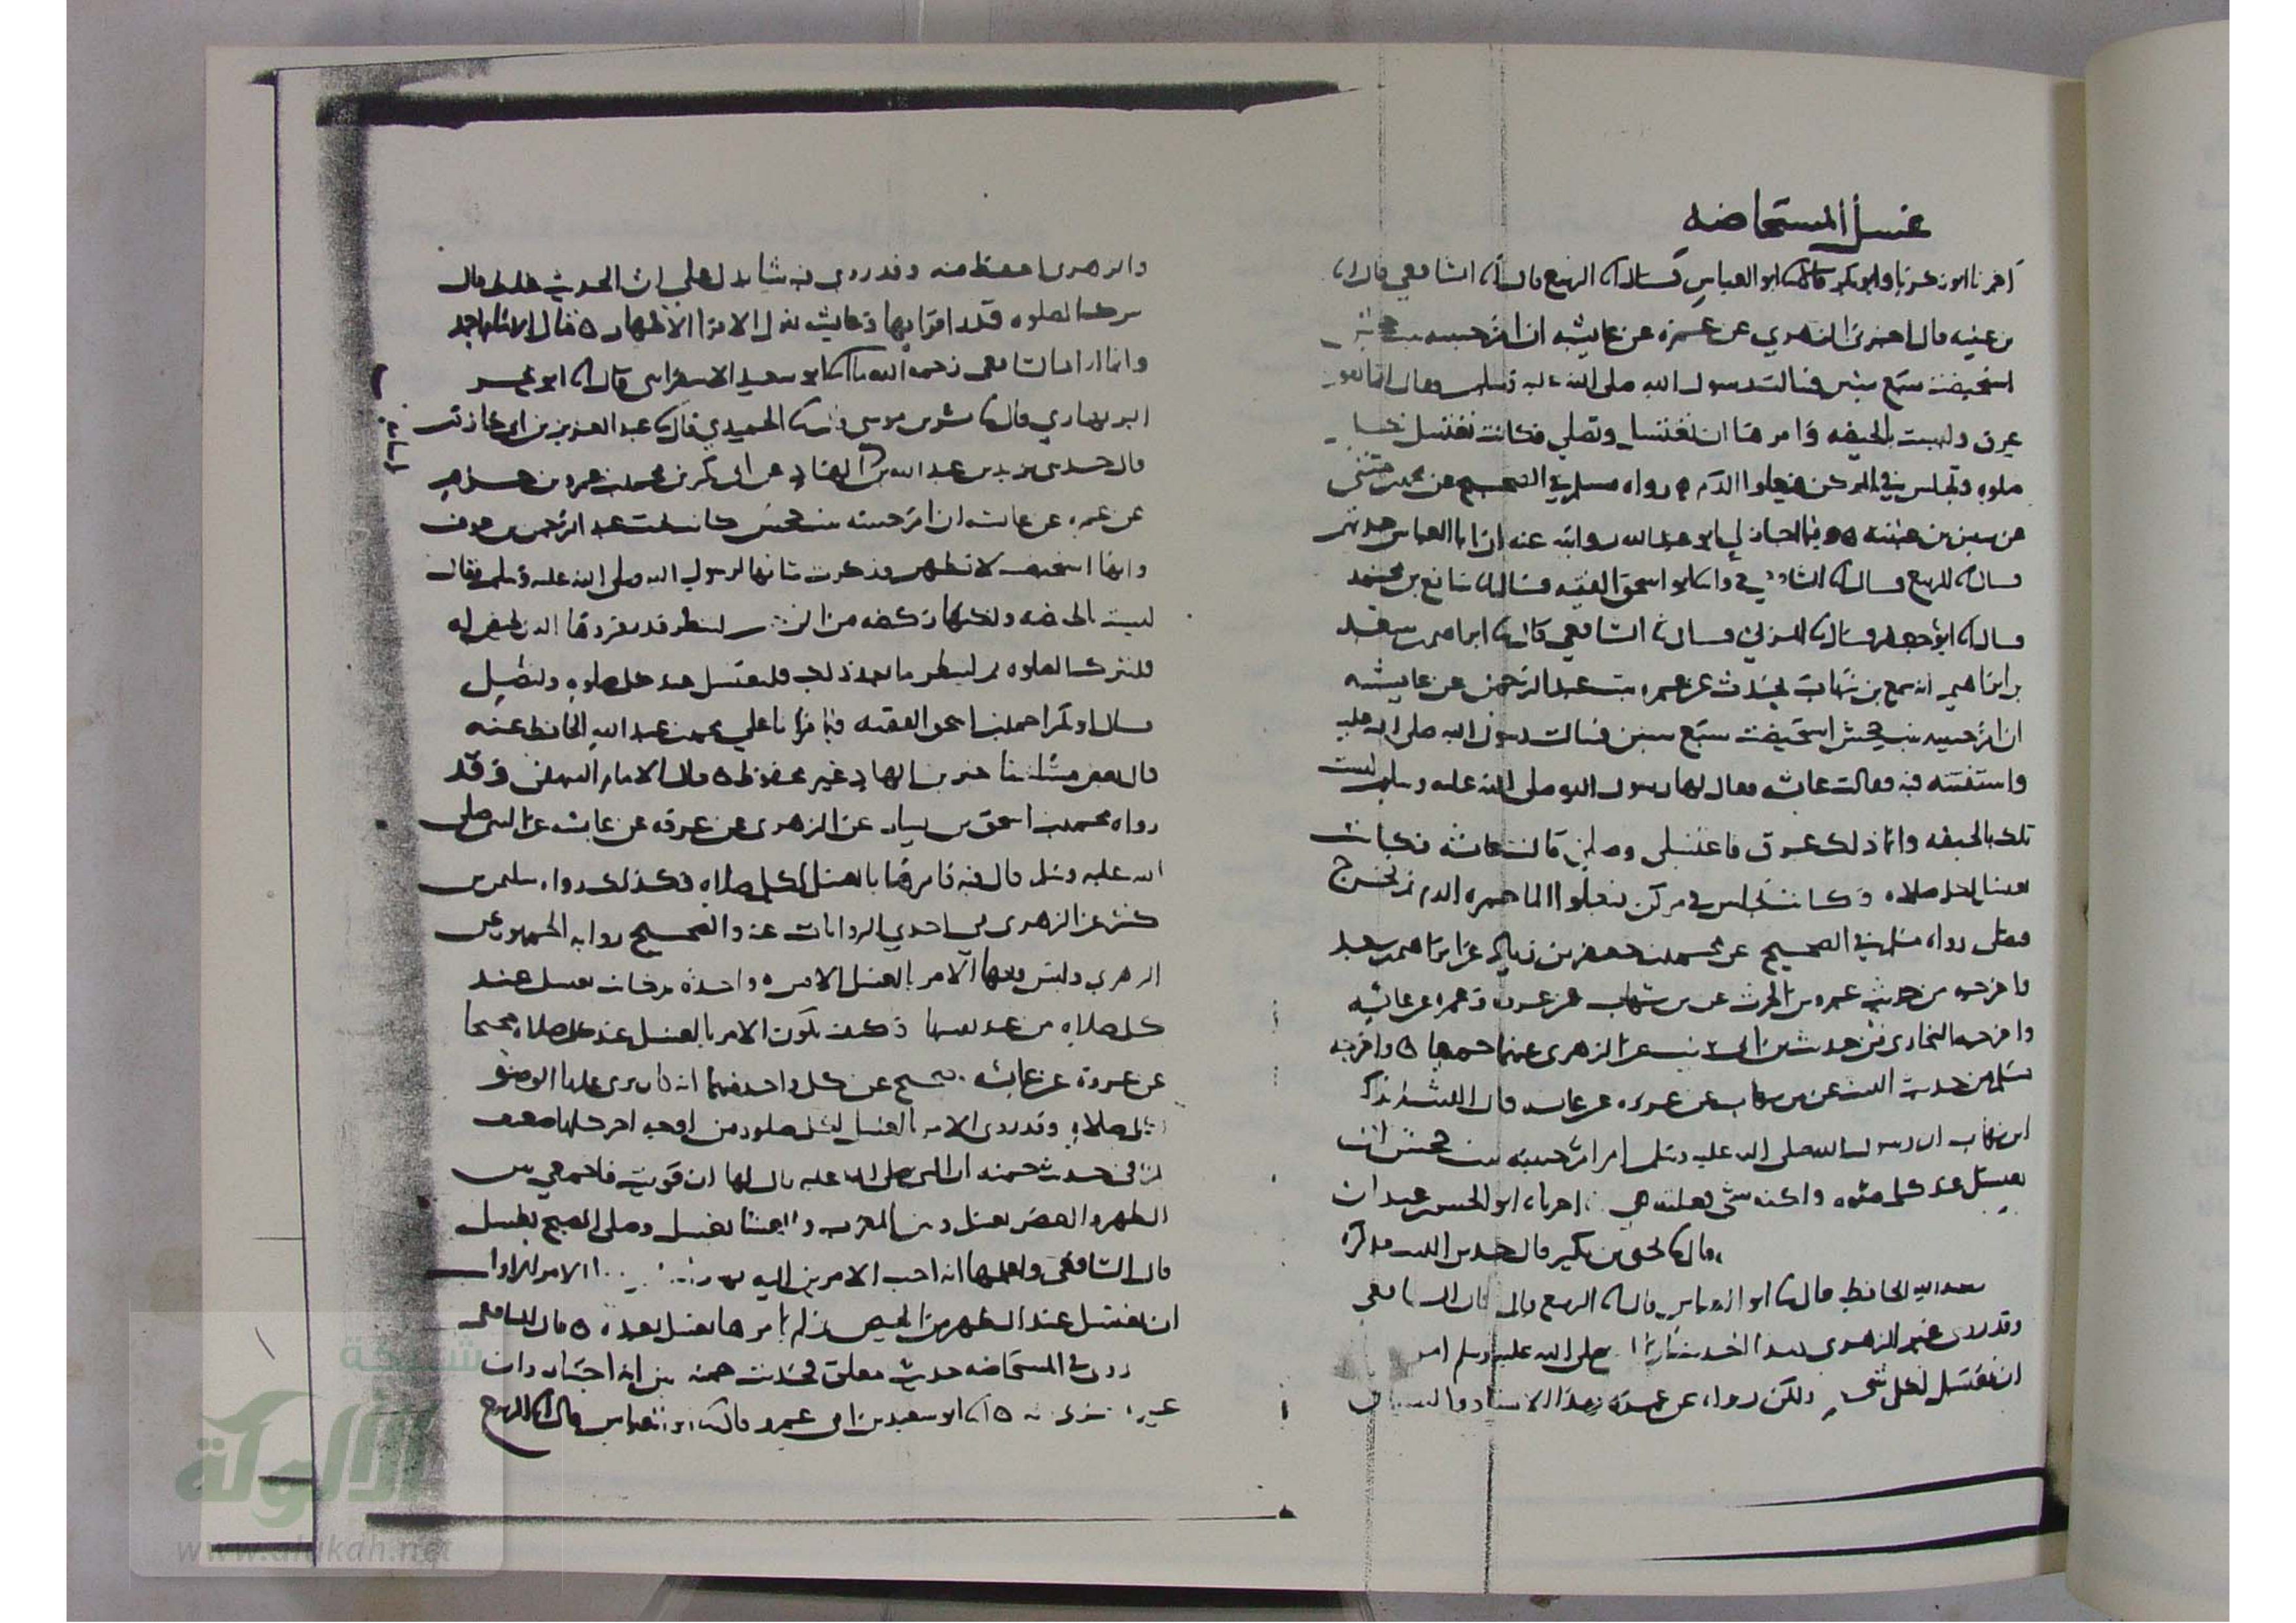 غسل المستحاضه
اخبرنا ابو زكريا وابو بكر قالا ابو العباس قال الربيع قال الشافعي قال
بن عيينه قال اخبرني الزهري عن عمره عن عايشه ان ام حبيبه بنت جحش
استحيضت سبع سنين فسالت رسول الله صلى الله عليه وسلم فقال انما هو
عرق وليست بالحيضه وامرها ان تغتسل وتصلي فكانت تغتسل لكل
صلوه وتجلس في المركن فيعلوا الدم رواه مسلم في الصحيح عن محمد بن مثنى
عن سفين بن عيينه وفيما اجاز لي ابو عبد الله روايته عنه ان ابا العباس حدثهم
قال الربيع قال الشافعي وانا ابو اسحق الفقيه قال شافع بن محمد
قال ابو جعفر قال المزني قال الشافعي قال ابراهيم بن سعد
بن ابراهيم انه سمع بن شهاب يحدث عن عمره بنت عبد الرحمن عن عايشه
ان ام حبيبه بنت جحش استحيضت سبع سنين فسالت رسول الله صلى الله عليه
واستفتته فيه فقالت عائشه فقال لها رسول الله صلى الله عليه وسلم ليست
تلك بالحيضه وانما ذلك عرق فاغتسلي وصلي قالت عائشه فكانت
تغتسل لكل صلاه وكانت تجلس في مركن فيعلوا الماء حمره الدم ثم تخرج
فتصلي رواه مسلم في الصحيح عن محمد بن جعفر بن زياد عن ابراهيم بن سعد
واخرجه من حديث عمرو بن الحرث عن بن شهاب عن عروه وعمره عن عائشه
واخرجه البخاري من حديث بن ابي ذيب عن الزهري عنهما جميعا واخرجه
مسلم من حديث الليث عن بن شهاب عن عروه عن عائشه قال الليث لم يذكر
ابن شهاب ان رسول الله صلى الله عليه وسلم امر ام حبيبه بنت جحش ان
تغتسل عند كل صلوه ولكنه شي فعلته هي اخبرناه ابو الحسن بن عبدان
قال يحيى بن بكير قال حدثني الليث فذكره
عبد الله الحافظ قال ابو العباس قال الربيع قال قال الشافعي
وقد روى غير الزهري هذا الحديث ان النبي صلى الله عليه وسلم امرها
ان تغتسل لكل صلاه ولكن رواه عن عمره بهذا الاسناد والسياق
والزهري احفظ منه وقد روى فيه شيا يدل على ان الحديث غلط قال
تترك الصلوه قدر اقرايها وعايشه تقول الاقرا الاطهار
وانما اراد الشافعي رحمه الله ابو سعيد الاسفرايني قال ابو بحر
البربهاري قال بشر بن موسى قال الحميدي قال عبد العزيز بن ابي حازم
قال حدثني يزيد بن عبد الله بن الهاد عن ابي بكر بن محمد بن عمرو بن حزم
عن عمره عن عائشه ان ام حبيبه بنت جحش كانت تحت عبد الرحمن بن عوف
وانها استحيضت لا تطهر فذكرت شانها لرسول الله صلى الله عليه وسلم فقال
ليست بالحيضه ولكنها ركضه من الرحم لتنظر قدر قروها التي تحيض له
فلتترك الصلوه ثم لتنظر ما بعد ذلك فلتغتسل عند كل صلوه ولتصلي
قال ابو بكر احمد بن اسحق الفقيه فيما قرانا على محمد بن عبد الله الحافظ عنه
قال بعض مشايخنا خبر بن الهاد غير محفوظ قال الامام البيهقي وقد
رواه محمد بن اسحق بن يسار عن الزهري عن عروه عن عائشه عن النبي صلى
الله عليه وسلم قال فيه فامرها بالغسل لكل صلاه وكذلك رواه سليمن بن
كثير عن الزهري في احدى الروايات عنه والصحيح روايه الجمهور عن
الزهري وليس فيها الامر بالغسل الا مره واحده ثم كانت تغتسل عند
كل صلاه من عند نفسها وكيف يكون الامر بالغسل عند كل صلاه صحيحا
عن عروه عن عائشه وصحيح عن كل واحد منهما انه كان يرى عليها الوضو
لكل صلاه وقد روى الامر بالغسل لكل صلوه من اوجه اخر كلها ضعيف
في حديث حمنه ان النبي صلى الله عليه قال لها ان قويت فاجمعي بين
الظهر والعصر بغسل وبين المغرب والعشا بغسل وصلي الصبح بغسل
قال الشافعي واعلمها انه احب الامرين اليه الامر الاول
ان تغتسل عند الطهر من الحيض ثم لم يامرها بغسل بعده قال الشافعي
روى في المستحاضه حديث مطلق فحديث حمنه بين انه اختيار وان
غيره يجزي منه ابو سعيد بن ابي عمرو قال ابو العباس قال الربيع
شبكة
الألوكة
www.alukah.net